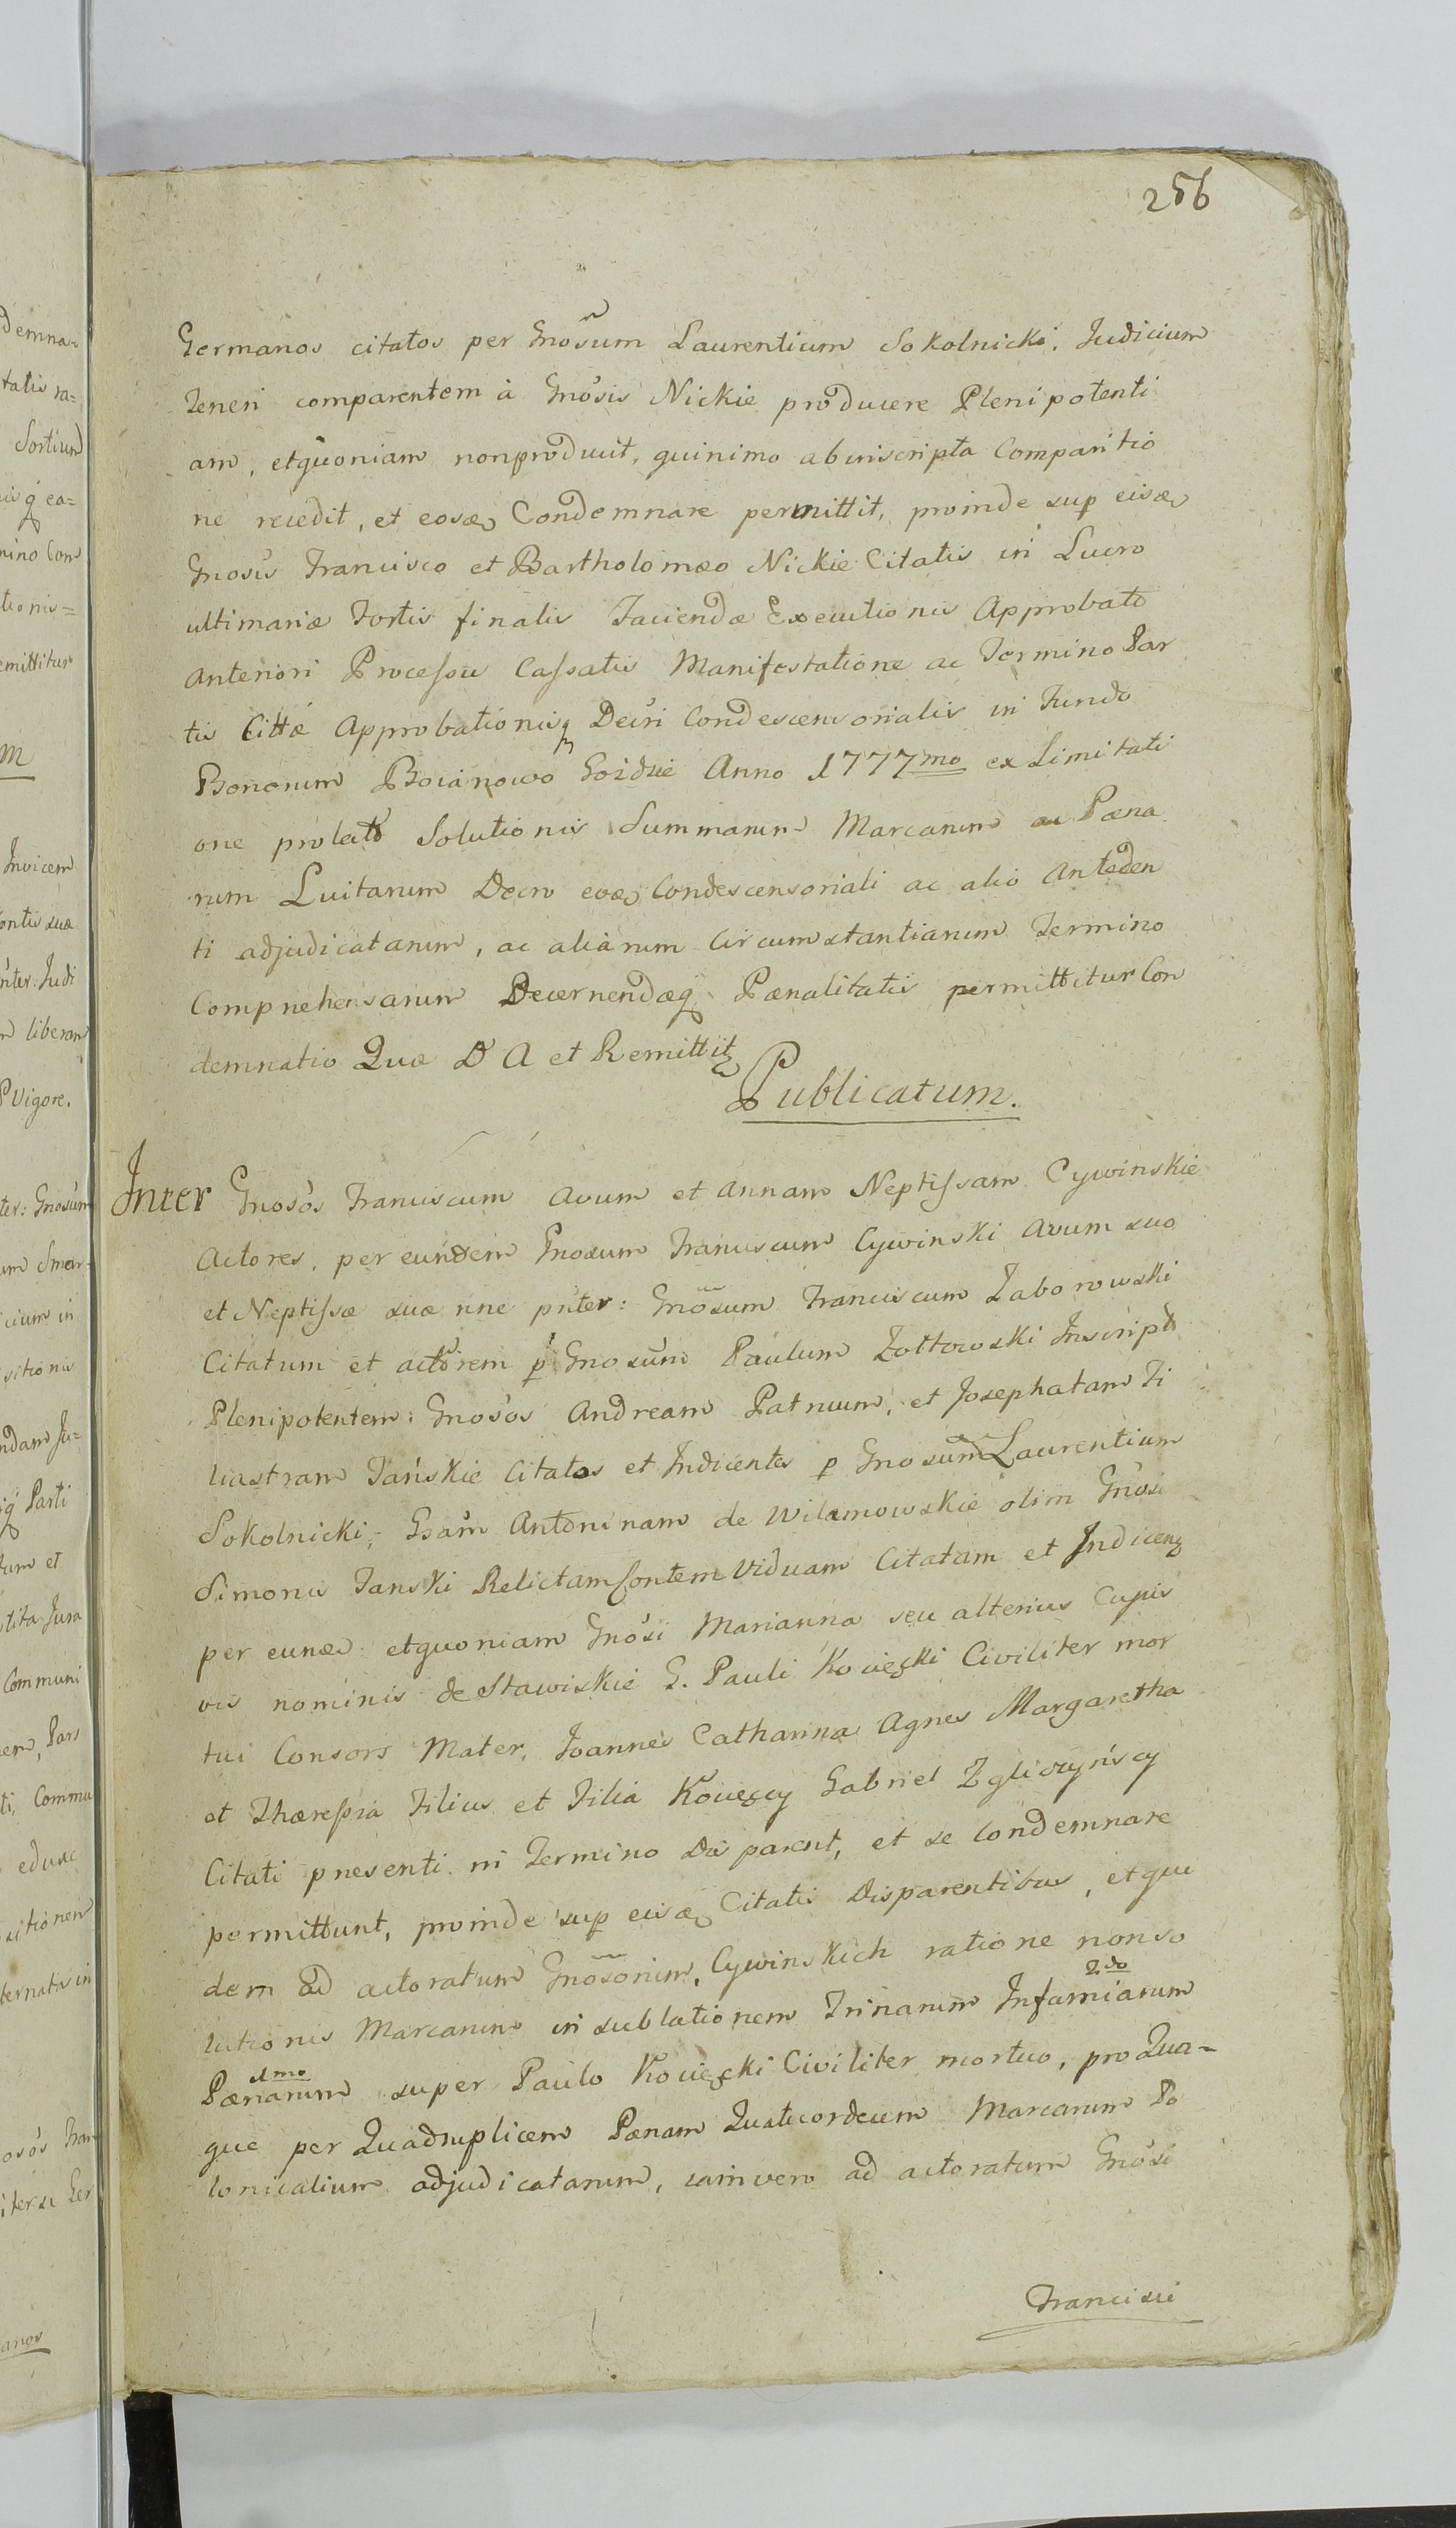 256
Germanos citatos per Gnosum Laurentium Sokolnicki. Judicium
Teneri comparentem à Gnosis Nickie producere Plenipotenti
am, etquoniam nonproduxit, quinimo abinscripta Comparitio
ne recedit, et eosdē Condemnare permittit, proinde sup eisdē
Gnosis Francisco et Bartholomæo Nickie Citatis in Lucro
ultimariæ Fortis finalis Faciendæ Executionis Approbato
Anteriori Processu Cassatis Manifestatione ac Termino Par
tis Cittæ Approbationisq Decri Condescensorialis in Fundo
Bonorum Boianowo Goździe Anno 1777mo ex Limitati
one prolato Solutionis Summarum Marcarum ac Pæna
rum Luitarum Decro eodē Condescensoriali ac alio Anteceden
ti adjudicatarum, ac aliarum Circumstantiarum Termino
Comprehensarum Decernendæq Pænalitatis permittitur Con
demnatio Quæ D A et Remittitr
Publicatum.
Inter Gnosos Franciscum Avum et Annam Neptissam Cywinskie
Actores, per eundem Gnosum Franciscum Cywinski Avum suo
et Neptissæ suæ nne pnter: Gnosum Franciscum Zaborowski
Citatum et actorem p Gnosum Paulum Zołtowski Inscript
Plenipotentem: Gnosos Andream Patruum, et Josephatam Fi
liastram Tańskie Citatos et Indicentes p Gnosum Laurentium
Sokolnicki; Gsam Antoninam de Wilamowskie olim Gnosi
Simonis Tanski Relictam Contem Viduam Citatam et Indicen
per eundē etquoniam Gnosi Marianna seu alterius Cujus
vis nominis de Stawiskie G. Pauli Kocięcki Civiliter mor
tui Consors Mater, Joannes Catharina Agnes Margaretha
et Thæressia Filius et Filia Kocięcy Gabriel Zgliczyńscy
Citati presenti in Termino Dis parent, et se Condemnare
permittunt, proinde sup eisdē Citatis Disparentibus, etqui
dem ad actoratum Gnosorum Cywinskich ratione nonso
lutionis Marcarum in sublationem Trinarum Infamiarum 2do
Pænarum 1mo super Paulo Kocięcki Civiliter mortuo, pro Qua=
que per Quadruplicem Pænam Quatuordecim Marcarum Po
lonicalium adjudicatarum, iamvero ad actoratum Gnosi
Francisci